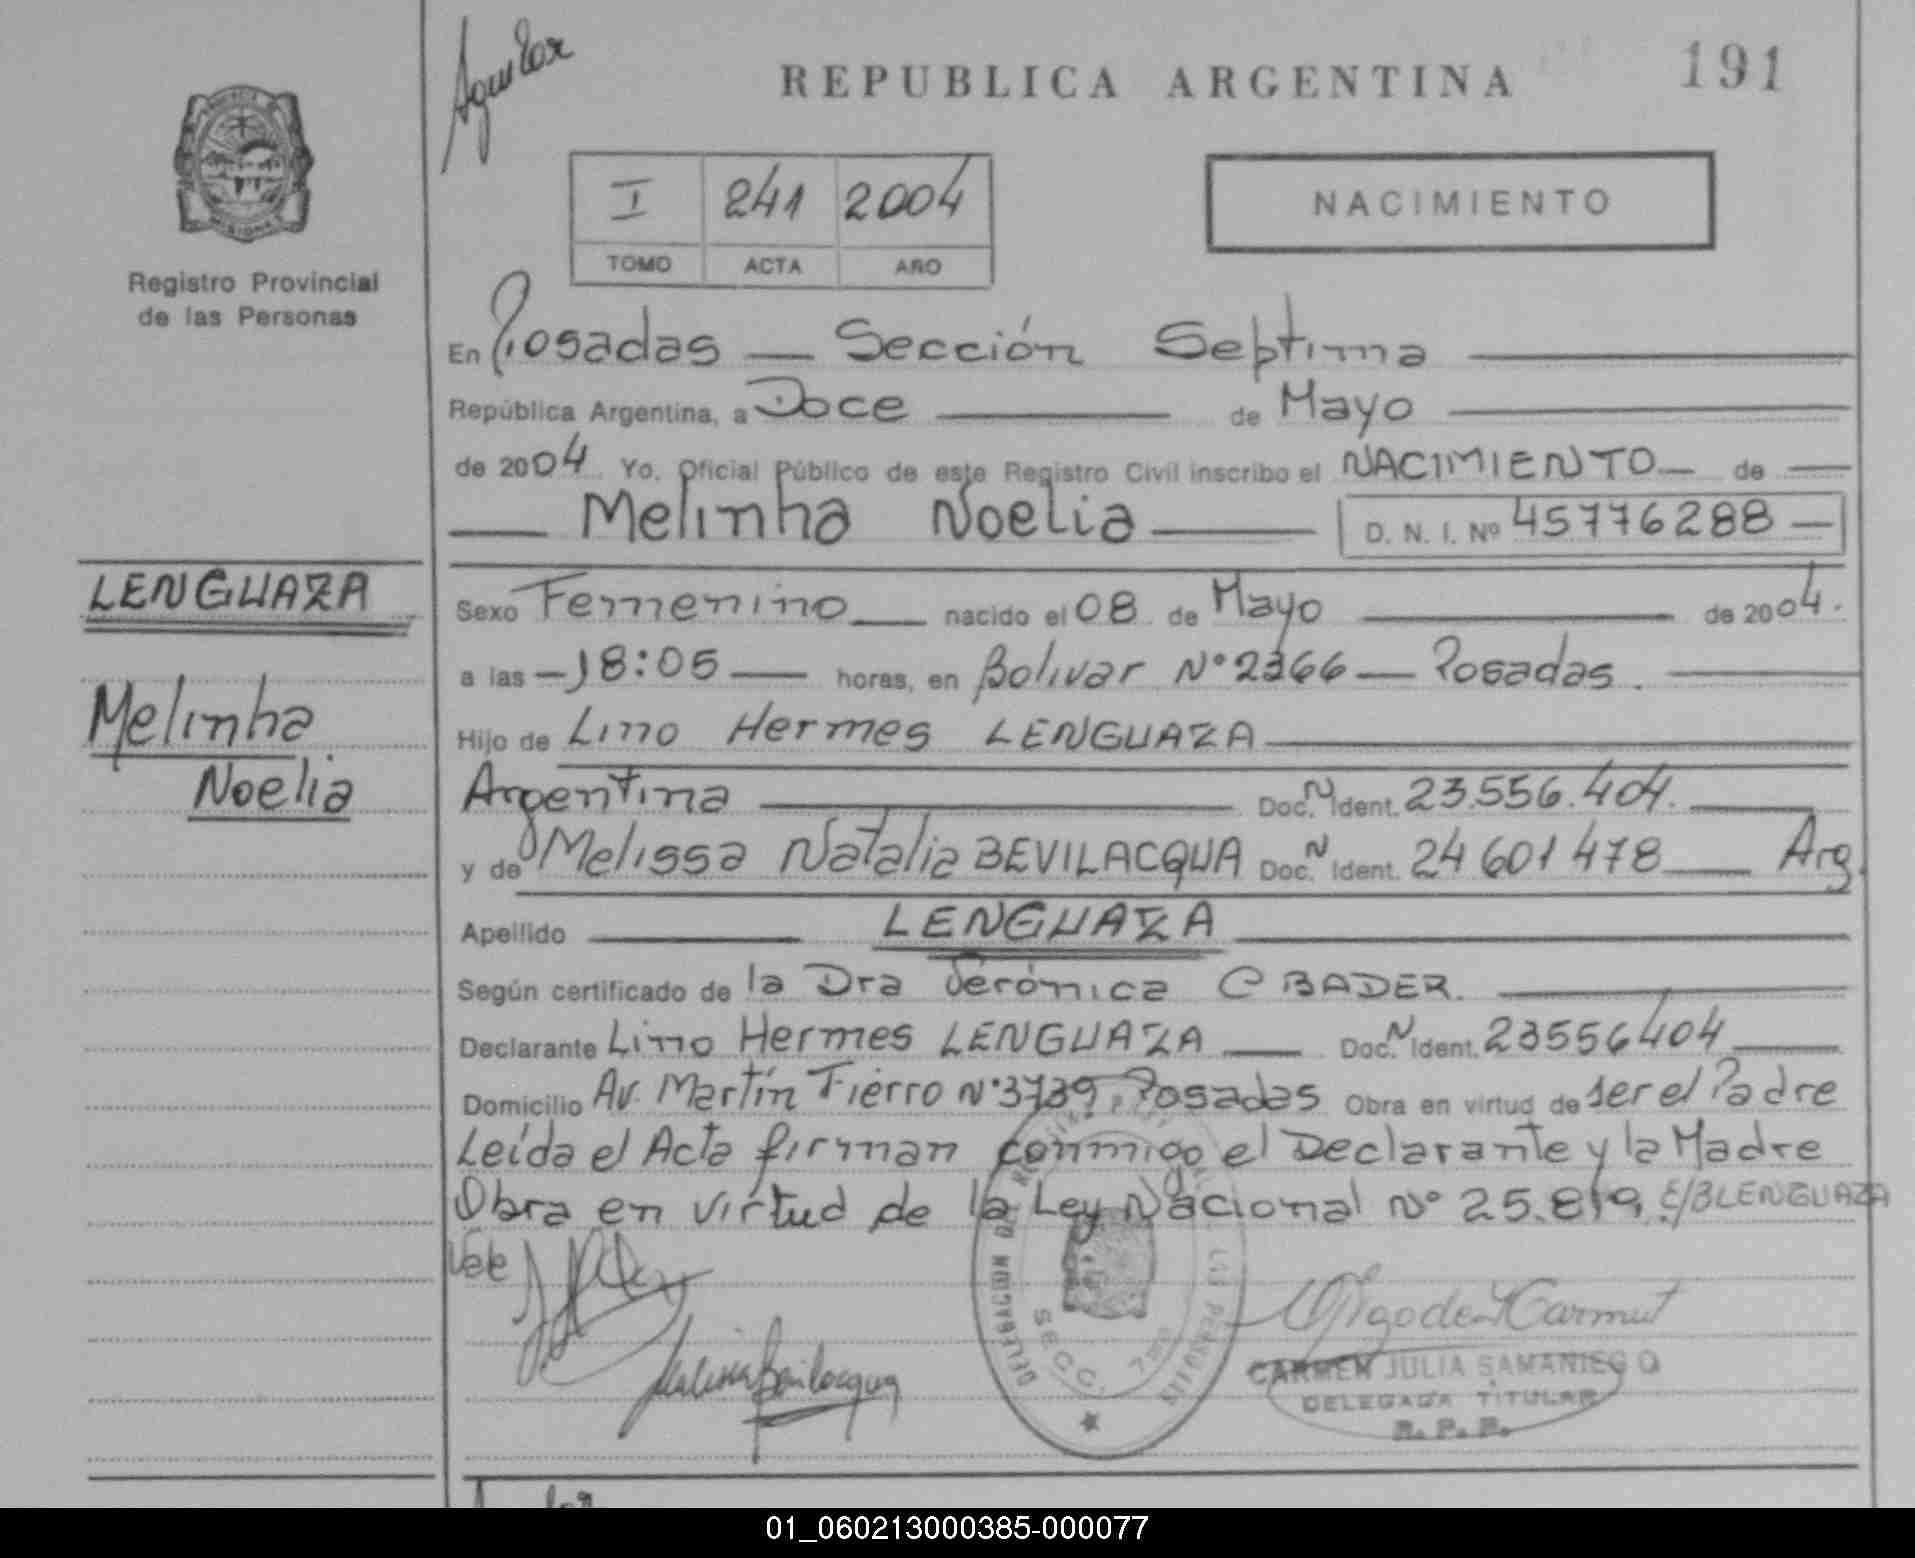 Aguilar
REPUBLICA ARGENTINA
191
Registro Provincial
de las Personas
I 241 2004
TOMO ACTA AÑO
NACIMIENTO
En Posadas — Sección Septima
República Argentina, a Doce de Mayo
de 2004 Yo, Oficial Público de este Registro Civil inscribo el NACIMIENTO — de
Melinha Noelia D. N. I. Nº 45776288 —
LENGUAZA
Melinha
Noelia
Sexo Femenino nacido el 08 de Mayo de 2004.
a las — 18:05 — horas, en Bolivar N° 2366 — Posadas.
Hijo de Lino Hermes LENGUAZA
Argentina Doc. N Ident. 23.556.404.
y de Melissa Natalia BEVILACQUA Doc. N Ident. 24 601 478 Arg.
Apellido LENGUAZA
Según certificado de la Dra Verónica C BADER.
Declarante Lino Hermes LENGUAZA Doc. N Ident. 23556404
Domicilio Av. Martín Fierro N° 3739 Posadas Obra en virtud de ser el Padre
Leída el Acta firman conmigo el Declarante y la Madre
Obra en virtud de la Ley Nacional N° 25.819. E/B LENGUAZA
Vale
Melissa Bevilacqua
DELEGACION DEL
SECC. 7ma
LAS PERSONAS
CARMEN JULIA SAMANIEGO
DELEGADA TITULAR
R. P. P.
01_060213000385-000077